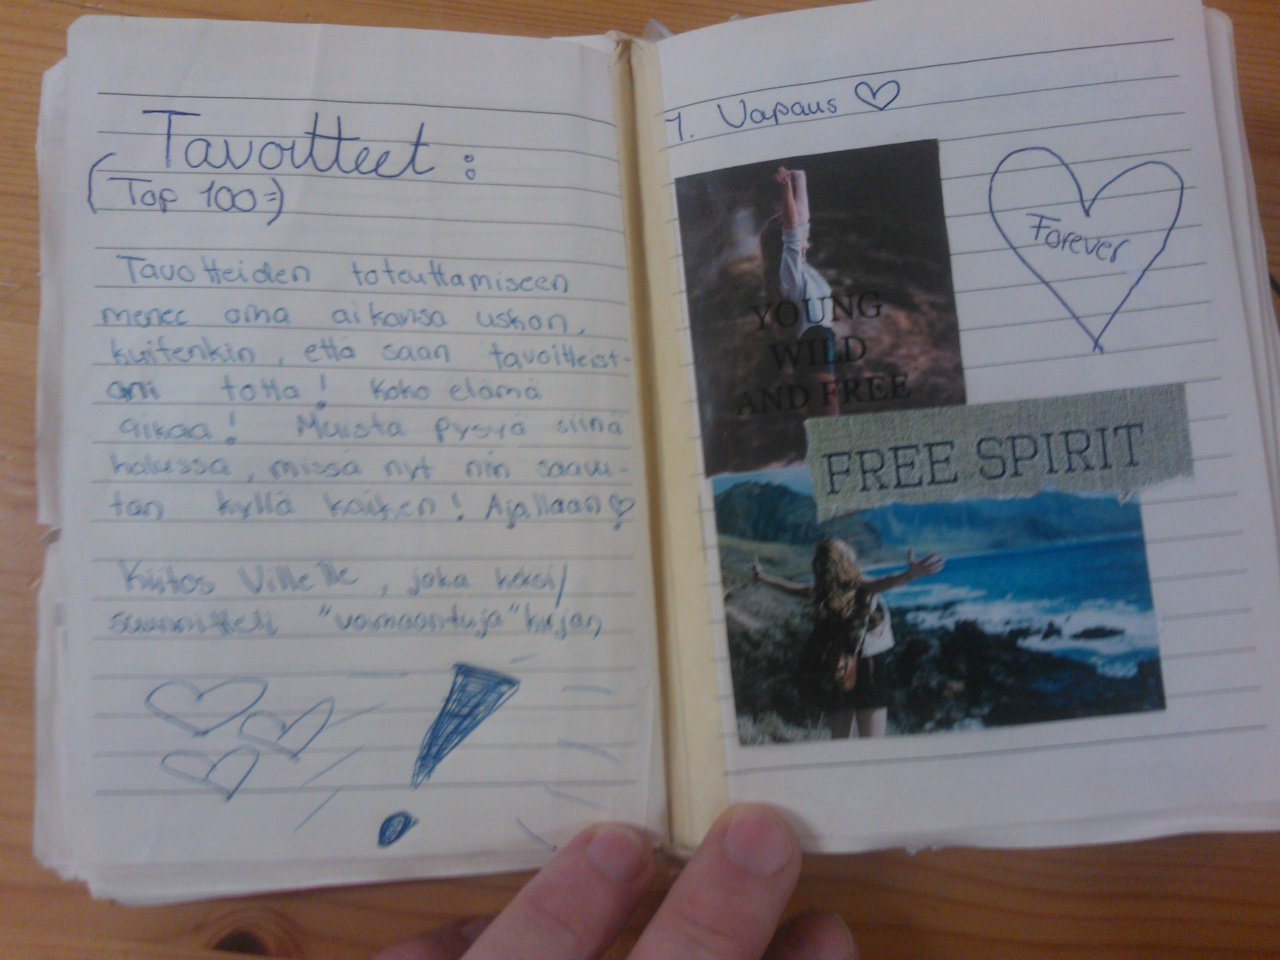 Tavoitteet :
(Top 100=)
Tavoitteiden toteuttamiseen
menee oma aikansa uskon,
kuitenkin, että saan tavoitteist-
ani totta! Koko elämä
aikaa! Muista pysyä siinä
hetkessä, missä nyt niin saavu-
tan kyllä kaiken! Ajallaan ♡
Kiitos Villelle, joka keksi/
suunnitteli "voimaantuja" kirjan
1. Vapaus ♡
Forever
YOUNG
WILD
AND FREE
FREE SPIRIT